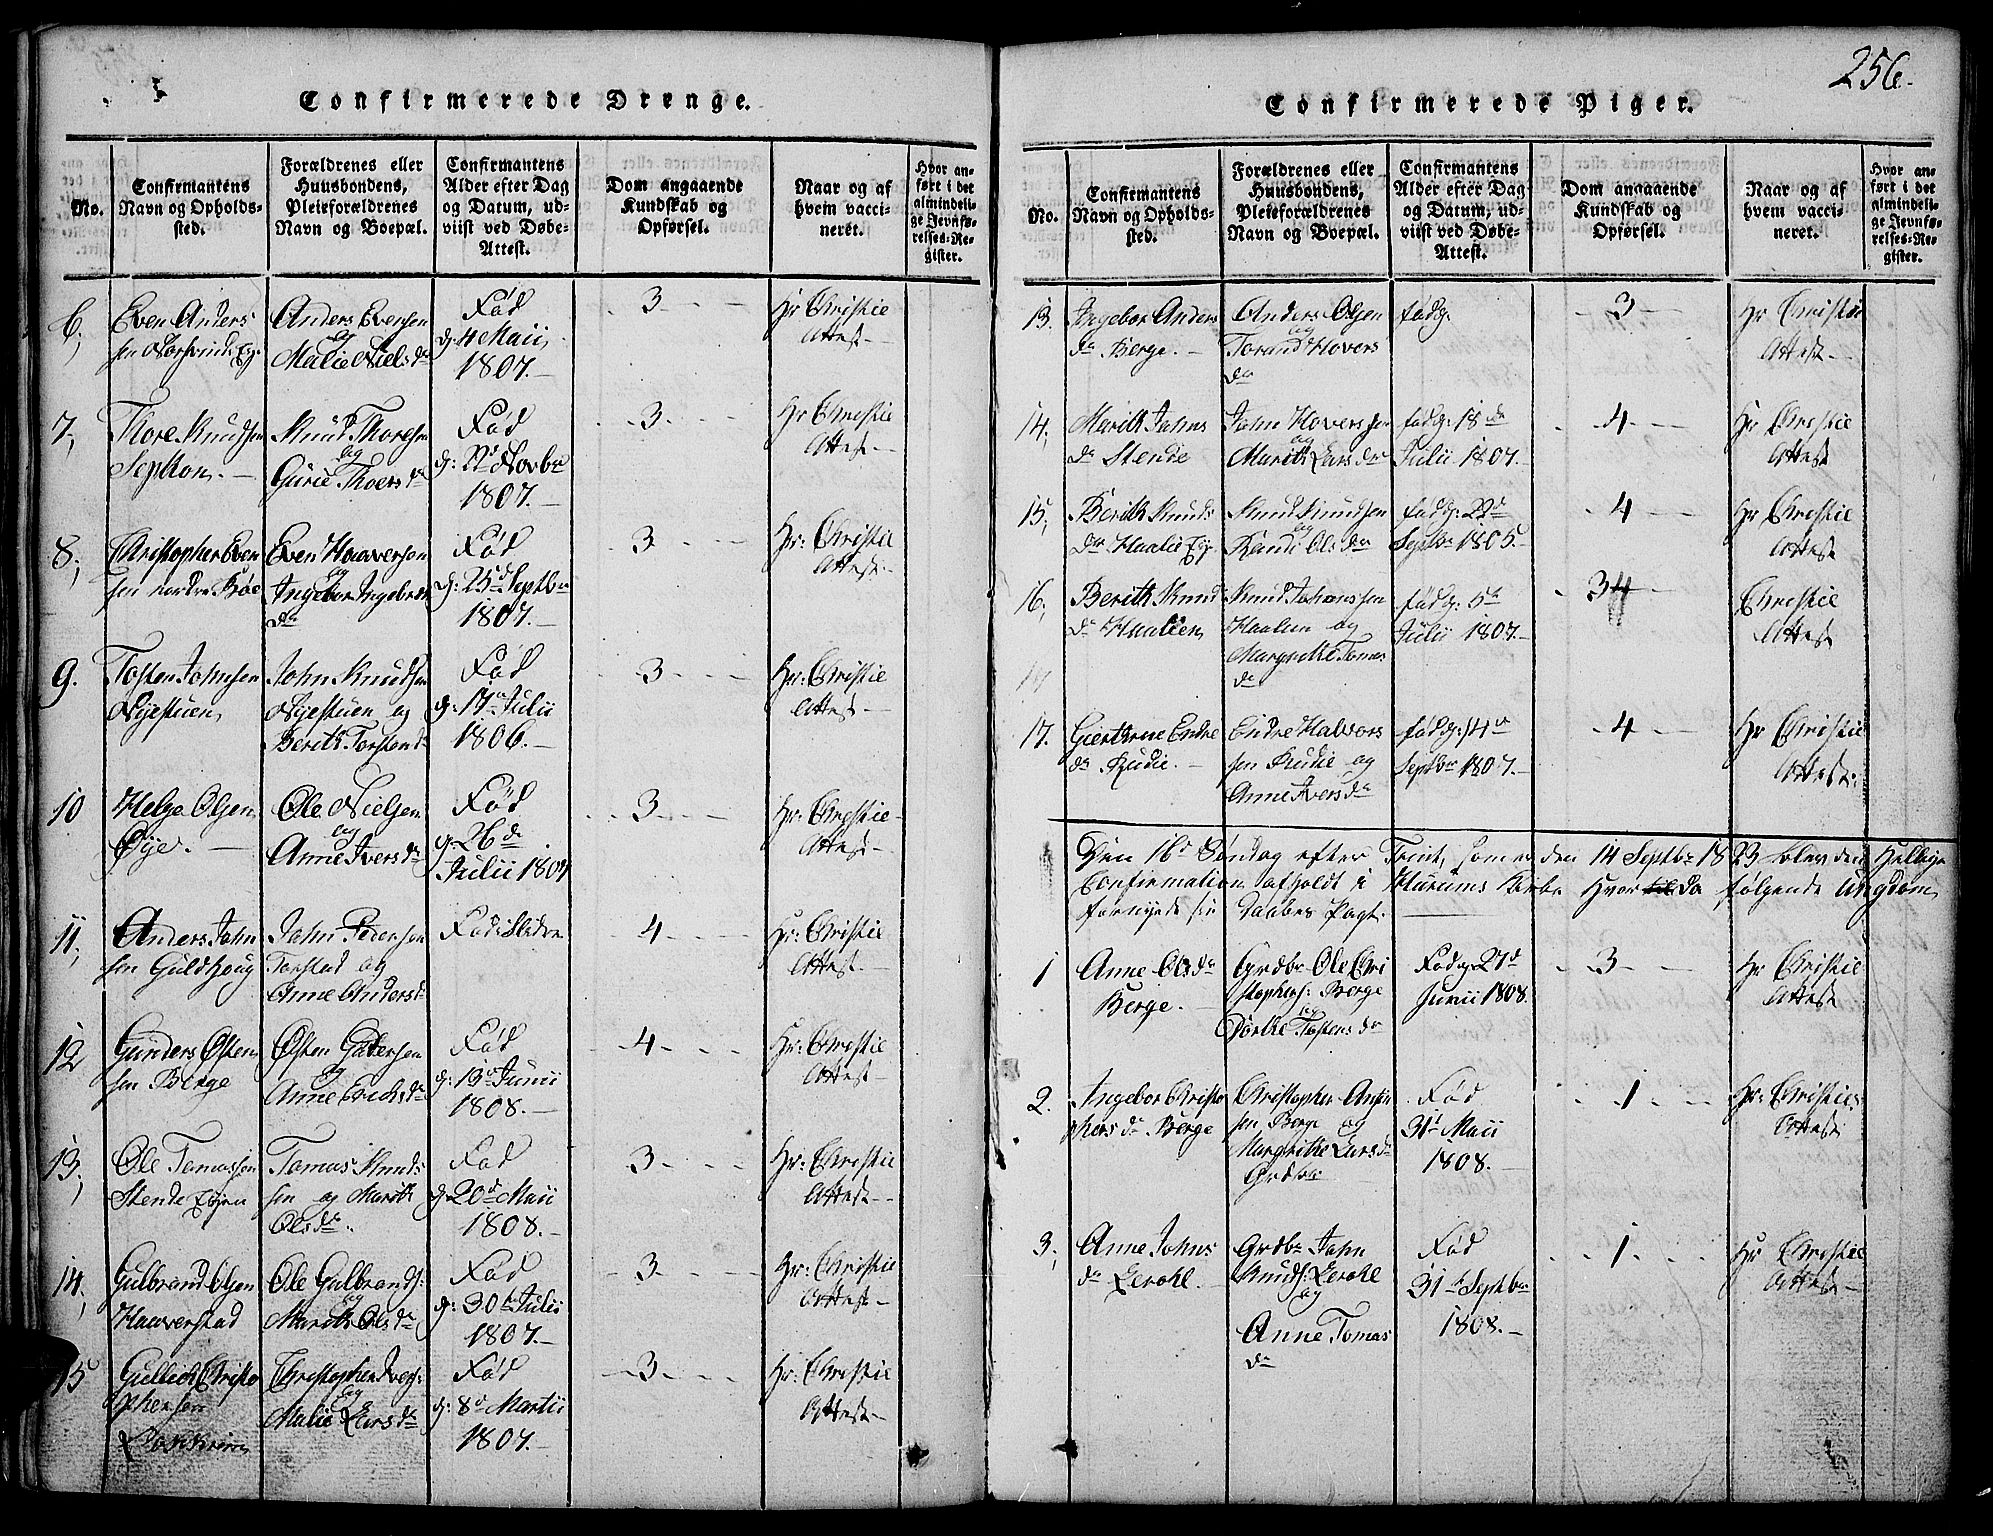 Confirmerede Drenge.
No.
Confirmantens
Navn og Opholds-
sted.
Forældrenes eller
Huusbondens,
Pleieforældrenes
Navn og Boepæl.
Confirmantens
Alder efter Dag
og Datum, ud-
viist ved Døbe-
Attest.
Dom angaaende
Kundskab og
Opførsel.
Naar og af
hvem vacci-
neret.
Hvor an-
ført i det
almindeli-
ge Jevnfø-
relses-Re-
gister.
6,
Even Anders
sen
Anders Evensen
og
Malie Niels dr
Fød
d: 4 Maii
1807.
3
Hr Christie
Attest
7,
Thore Knudsen
Knud Thoresen
og
Gurie Thoers dr
Fød
1807.
3
Hr Christie
Attest
8,
Christopher Even
sen nordre
Even Haaversen
og
Ingebor
dr
Fød
d: 25d Septbr
1807.
3
Hr: Christie
Attest
9.
Tosten Johnsen
Nÿestuen
John Knudsen
Nÿestuen og
Berith Torstens dr
Fød
d: 17 Julii
1806.
3
Hr: Christie
Attest
10
Helge Olsen
Øÿe.
Ole Nielsen
og
Anne Ivers dr
Fød
d: 26 de
Julii 1807
3
Hr: Christie
Attest
11,
Anders John
sen Guldhoug
John Pedersen
Torstad og
Anne Anders dr
Fød i Slidre
4
Hr: Christie
Attest
12
Gunders Østen
sen Berge
Østen
og
Anne Erichs dr
Fød
d: 13 Junii
1808.
4
Hr: Christie
Attest
13,
Ole Tomassen
Stende
Tomas Knud
sen og Marith
Ols dr.
Fød
d: 20d Maii
1808.
3
Hr: Christie
Attest
14,
Gulbrand Olsen
Haaverstad
Ole Gulbrands:
og
Marith Ols dr
Fød
d: 30 Julii
1807.
3
Hr: Christie
Attest
15
Gullich Christo
phersen
Christopher
og
Malie Lars dr
Fød
d: 8d Martii
1807.
3
Hr: Christie
Attest
256.
Confirmerede Piger.
No.
Confirmantens
Navn og Opholds-
sted.
Forældrenes eller
Huusbondens,
Pleieforældrenes
Navn og Boepæl.
Confirmantens
Alder efter Dag
og Datum, ud-
viist ved Døbe-
Attest.
Dom angaaende
Kundskab og
Opførsel.
Naar og af
hvem vacci-
neret.
Hvor an-
ført i det
almindeli-
ge Jevnfø-
relses-Re-
gister.
13.
Ingebor Anders
dr Berge.
Anders Olsen
og
Torand Hovers
dr
fød d:
3
Hr Christie
Attest
14,
Marith Johns
dr Stende
John Hoversen
og
Marith Lars dr
fød d: 18 de
Julii 1807.
4
Hr Christie
Attest
15,
Berith Knuds
dr
Knud Knudsen
og
Randi Ols dr
fød d: 22 de
Septbr 1805.
4
Hr Christie
Attest
16,
Berith Knud
dr Haalien
Knud Johanssen
Haalien og
Margrethe Tomas
dr
fød d: 5 te
Julii 1807.
34
Christie
Attest
17.
Giertrue Endre
dr Rudie.
Endre Halvors
sen Rudie og
Anne Ivers dr
fød d: 14 de
Septbr 1807.
4
Hr Christie
Attest:
Den 16d Søndag efter Trinit, som er den 14 Septbr 1823 blev den Hellige
Confirmation afholdt i Hurums Kirke Hvor da følgende Ungdom
fornyede sin Daabes Pagt.
1
Anne Ols dr
Berge.
Grdbr Ole Chri
stophers: Berge
og
Dorthe Tostens dr
Fød d: 27 d
Junii 1808.
3
Hr Christie
Attest
2.
Ingebor Christo
phers dr Berge
Christopher
sen Berge og
Margrethe Lars dr
Grdbr
Fød
31 t Maii
1808.
1
Hr: Christies
Attest
3,
Anne Johns
dr
Grdbr John
Knuds:
og
Anne Tomas
dr
Fød
31 t Septbr
1808.
1
Hr Christie
Attest